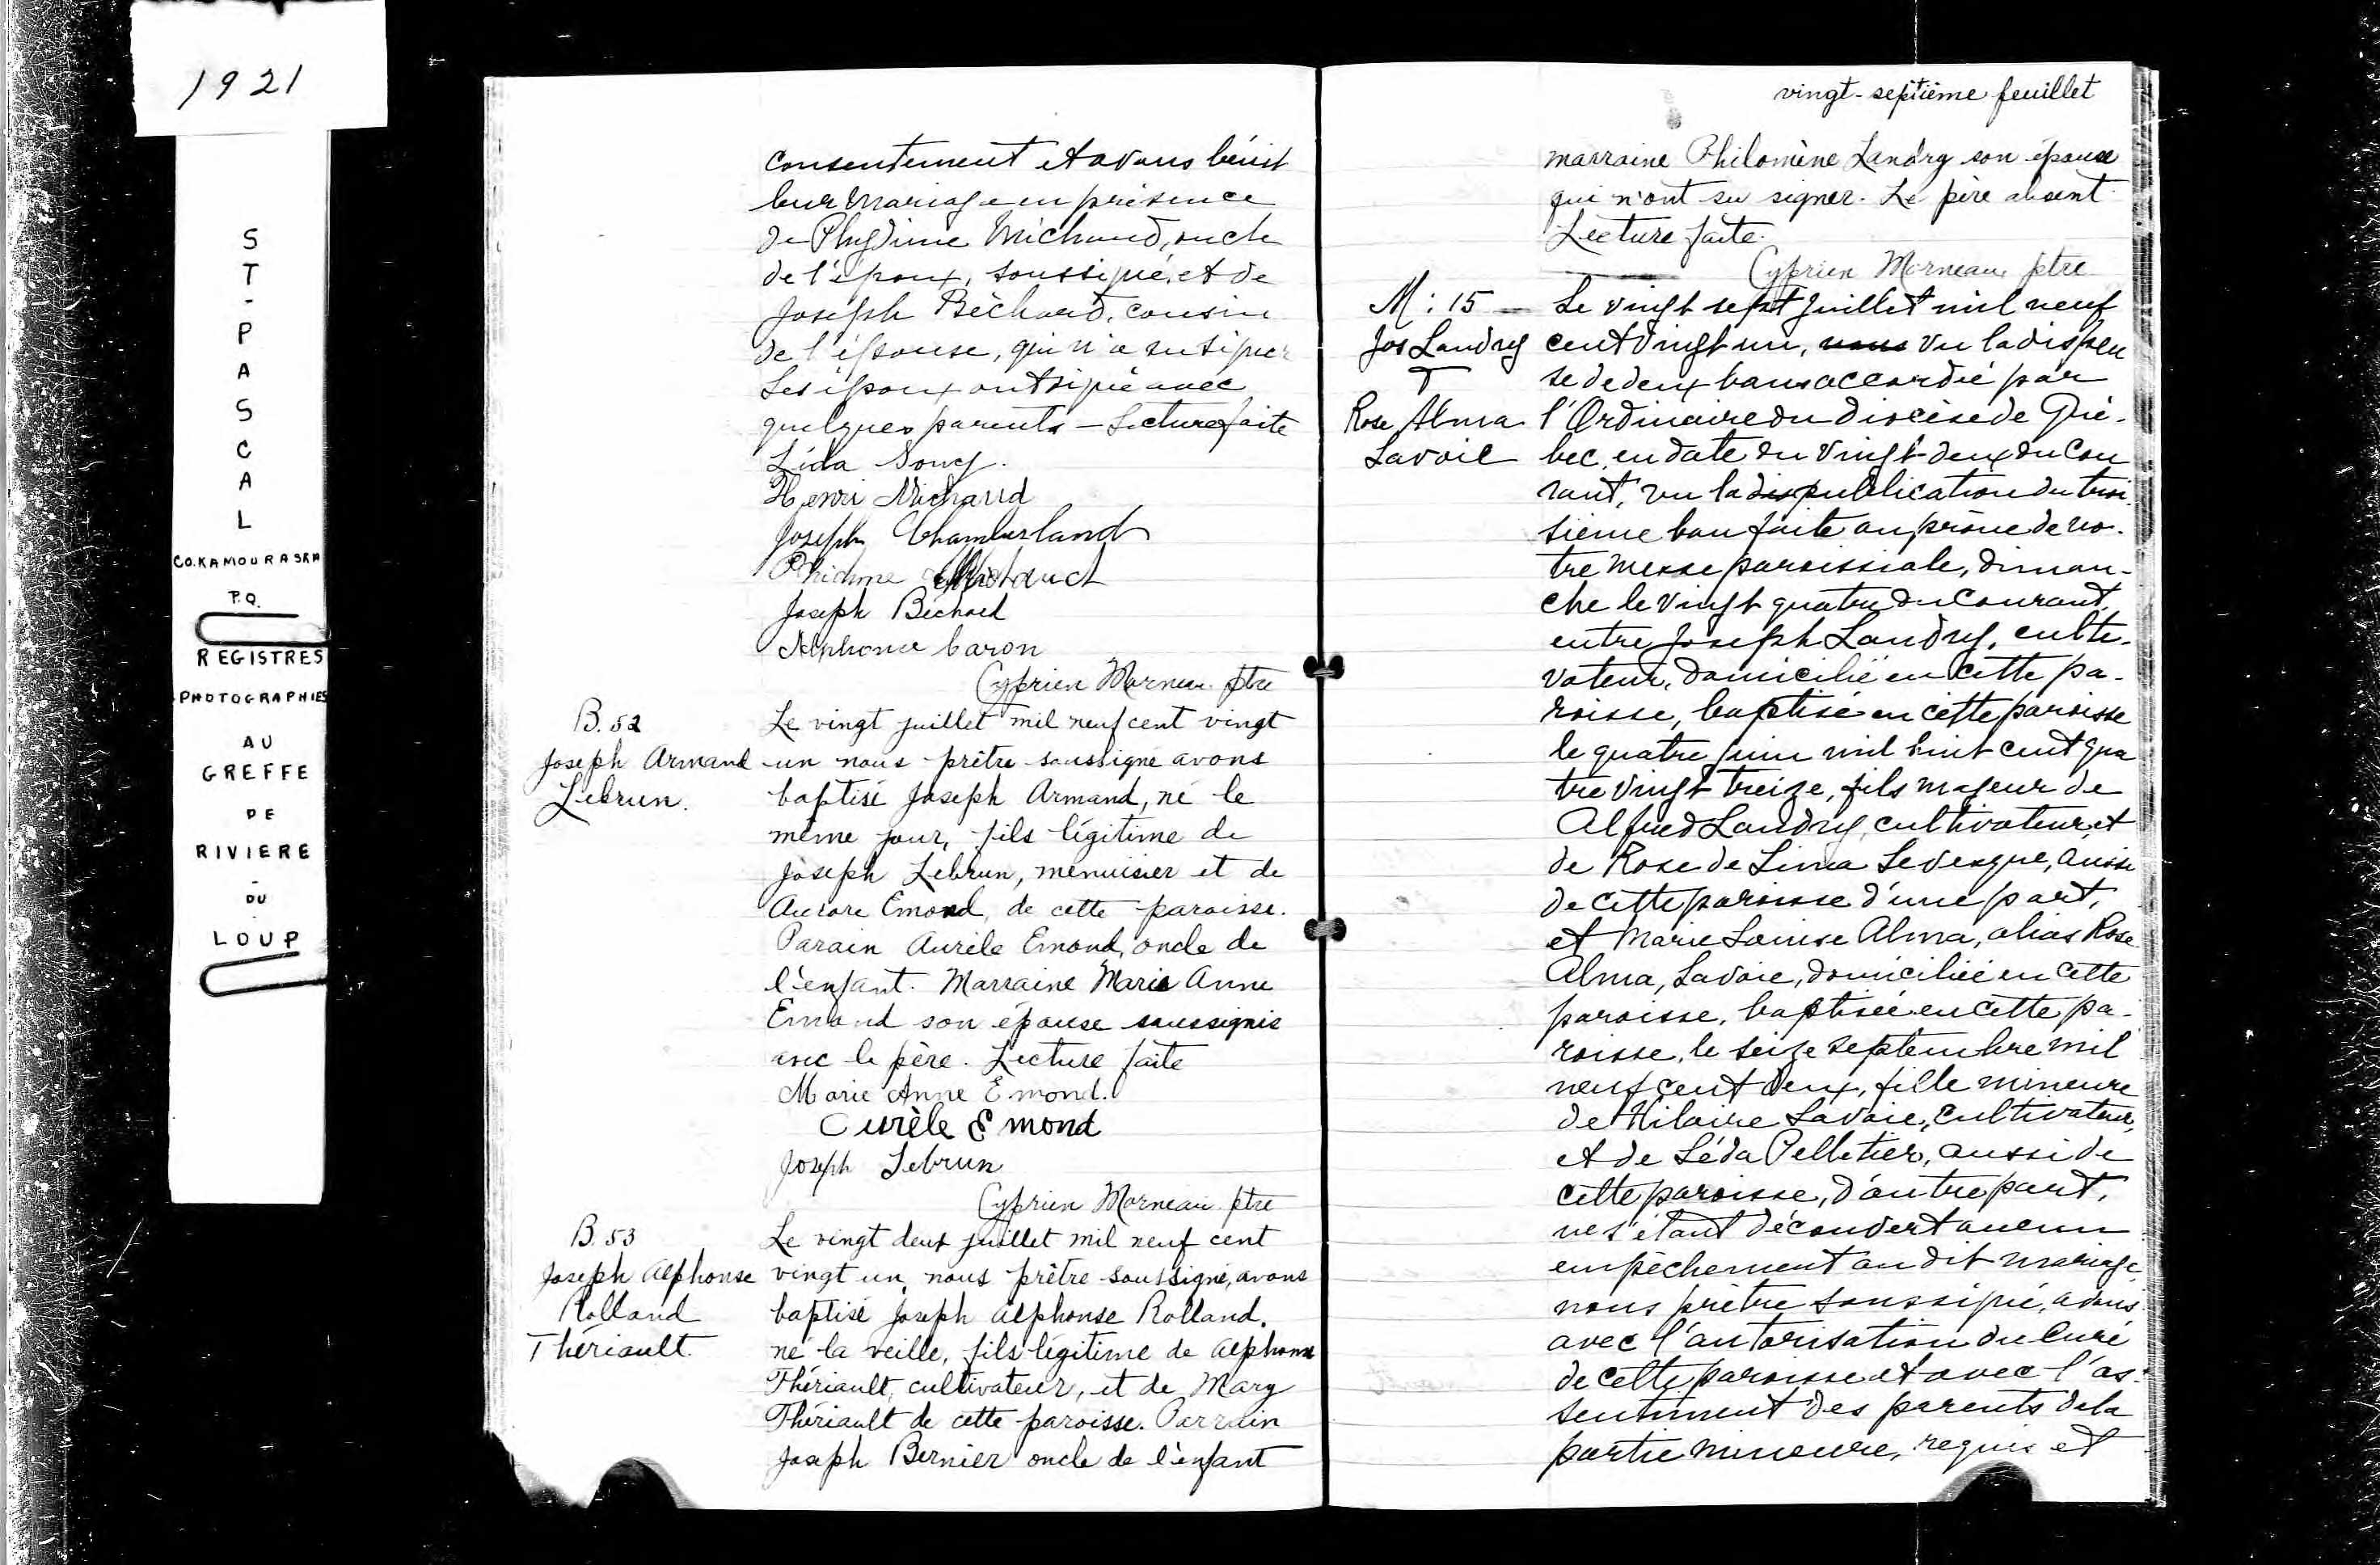 1921
ST-PASCAL
CO. KAMOURASKA
P.Q.
REGISTRES
PHOTOGRAPHIES
AU
GREFFE
DE
RIVIERE
-
DU
LOUP
consentement et avons bénit
leur mariage en présence
de Phydime Michaud, oncle
de l'époux, soussigné, et de
Joseph Béchard, cousin
de l'épouse, qui n'a su signer
Les époux ont signé avec
quelques parents - Lecture faite
Léda Soucy.
Henri Michaud
Joseph Chamberland
Phidime
Joseph Béchard
Alphonse Caron
Cyprien Morneau ptre
B. 52
Joseph Armand
Lebrun.
Le vingt juillet mil neuf cent vingt
un nous prêtre soussigné avons
baptisé Joseph Armand, né le
même jour, fils légitime de
Joseph Lebrun, menuisier et de
Aurore Emond, de cette paroisse.
Parain Aurèle Emond, oncle de
l'enfant. Marraine Marie Anne
Emond son épouse soussignés
avec le père. Lecture faite
Marie Anne Emond.
Aurèle Emond
Joseph Lebrun
Cyprien Morneau ptre
B. 53
Joseph Alphonse
Rolland
Thériault.
Le vingt deux juillet mil neuf cent
vingt un, nous prêtre soussigné, avons
baptisé Joseph Alphonse Rolland,
né la veille, fils légitime de Alphonse
Thériault, cultivateur, et de Mary
Thériault de cette paroisse. Parrain
Joseph Bernier oncle de l'enfant
vingt-septième feuillet
marraine Philomène Landry son épouse
qui n'ont su signer. Le père absent
Lecture faite.
Cyprien Morneau ptre
M : 15 -
Jos Landry
T
Rose Alma
Lavoie
Le vingt sept juillet mil neuf
cent vingt un, nous vu la dispen
se de deux bans accordée par
l'Ordinaire du diocèse de Qué-
bec, en date du vingt-deux du cou
rant, vu la dis publication du troi
sième ban faite au prône de no-
tre messe paroissiale, diman-
che le vingt quatre du courant,
entre Joseph Landry, culti-
vateur, domicilié en cette pa-
roisse, baptisé en cette paroisse
le quatre juin mil huit cent qua
tre vingt treize, fils majeur de
Alfred Landry, cultivateur, et
de Rose de Lima Levesque, aussi
de cette paroisse d'une part,
et Marie Louise Alma, alias Rose
Alma, Lavoie, domiciliée en cette
paroisse, baptisée en cette pa-
roisse, le seize septembre mil
neuf cent deux, fille mineure
de Hilaire Lavoie, cultivateur,
et de Léda Pelletier, aussi de
cette paroisse, d'autre part,
ne s'étant découvert aucun
empêchement au dit mariage,
nous prêtre soussigné, avons
avec l'autorisation du Curé
de cette paroisse et avec l'as-
sentiment des parents de la
partie mineure, requis et